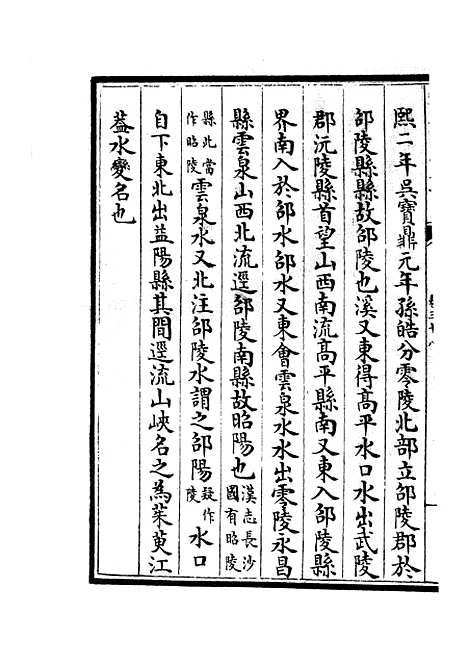 熙二年吳寶鼎元年孫皓分零陵北部立邵陵郡於
邵陵縣縣故邵陵也溪又東得高平水口水出武陵
郡沅陵縣首望山西南流高平縣南又東入邵陵縣
界南入於邵水邵水又東會雲泉水水出零陵永昌
縣雲泉山西北流逕邵陵南縣故昭陽也漢志長沙國有昭陵
縣北當作昭陵雲泉水又北注邵陵水謂之邵陽疑作陵水口
自下東北出益陽縣其間逕流山峽名之為茱萸江
葢水變名也